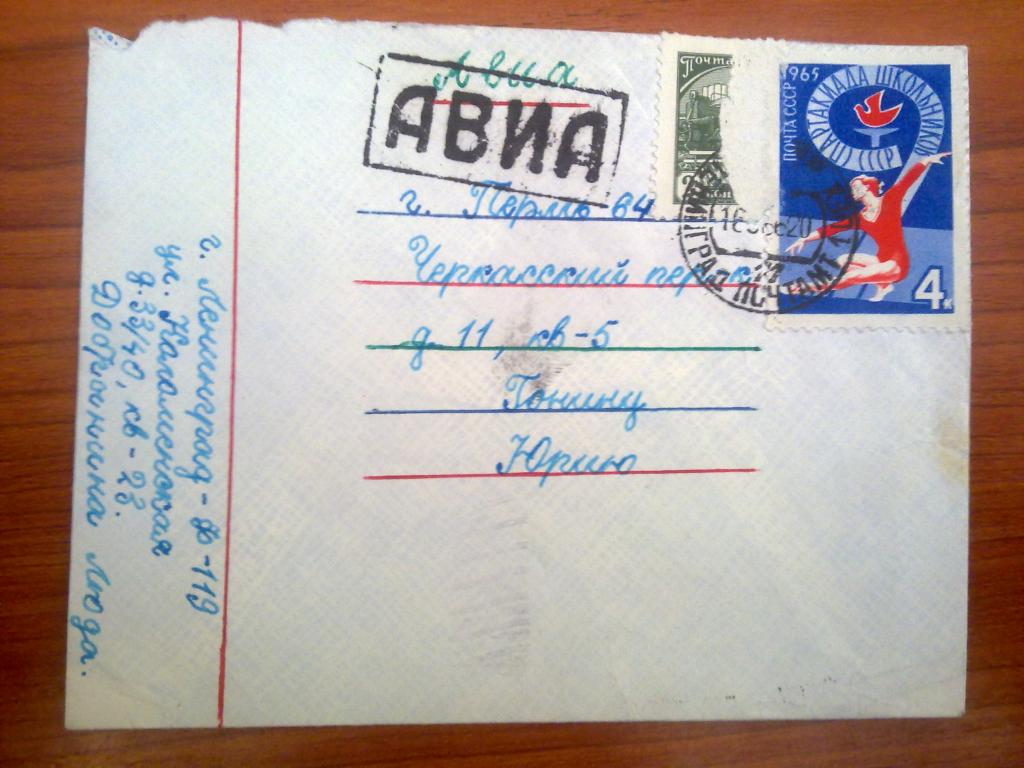 Авиа
АВИА
Почта
2
коп
1965
ПОЧТА СССР
СПАРТАКИАДА ШКОЛЬНИКОВ
СССР
4к
ЛЕНИНГРАД ПОЧТАМТ
20
г. Пермь 64
Черкасский
д. 11, кв-5
Гонину
Юрию
г. Ленинград-Ф-119
ул. Коломенская
д. 33/40, кв-28.
Добрынина Люда.